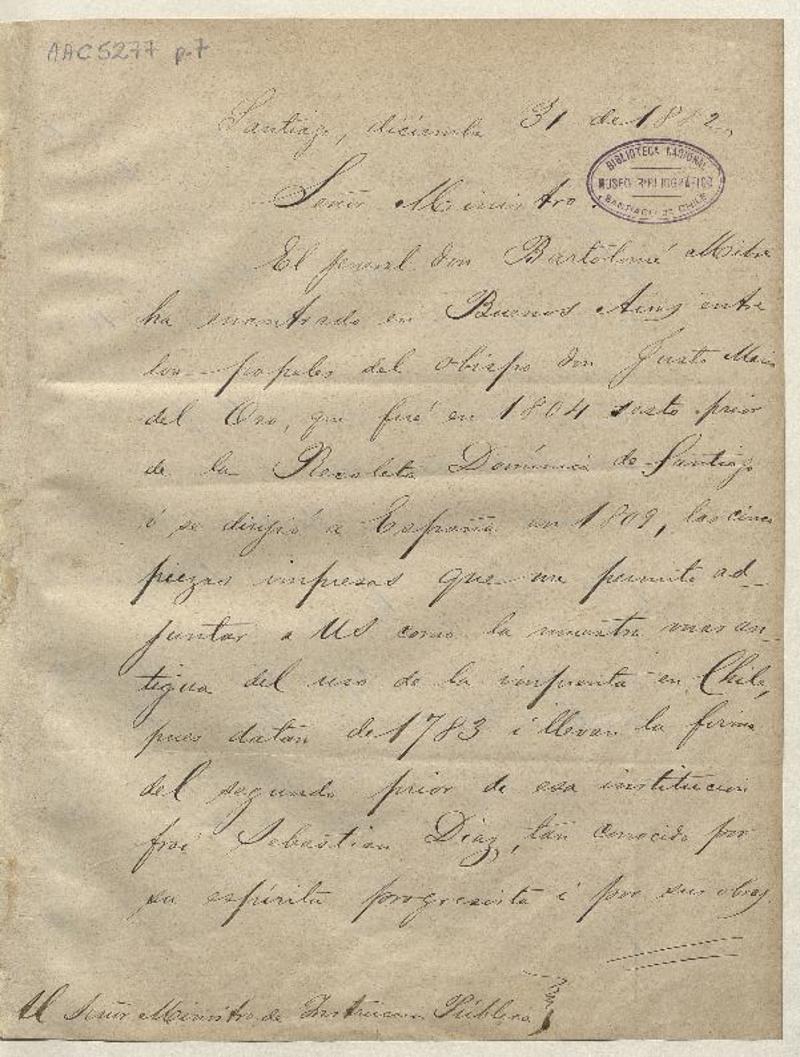 AAC 5277 p.7
Santiago, diciembre 31 de 1882
BIBLIOTECA NACIONAL
MUSEO BIBLIOGRÁFICO
SANTIAGO DE CHILE
Señor Ministro:
El jeneral don Bartolomé Mitre
ha encontrado en Buenos Aires entre
los papeles del obispo don Justo María
del Oro, que fué en 1804 sesto prior
de la Recoleta Domínica de Santiago
i se dirijió a España en 1809, las cinco
piezas impresas que me permito ad-
juntar a US como la muestra mas an-
tigua del uso de la imprenta en Chile,
pues datan de 1783 i llevan la firma
del segundo prior de esa institucion
frai Sebastian Diaz, tan conocido por
su espíritu progresista i por sus obras
Al Señor Ministro de Instruccion Pública